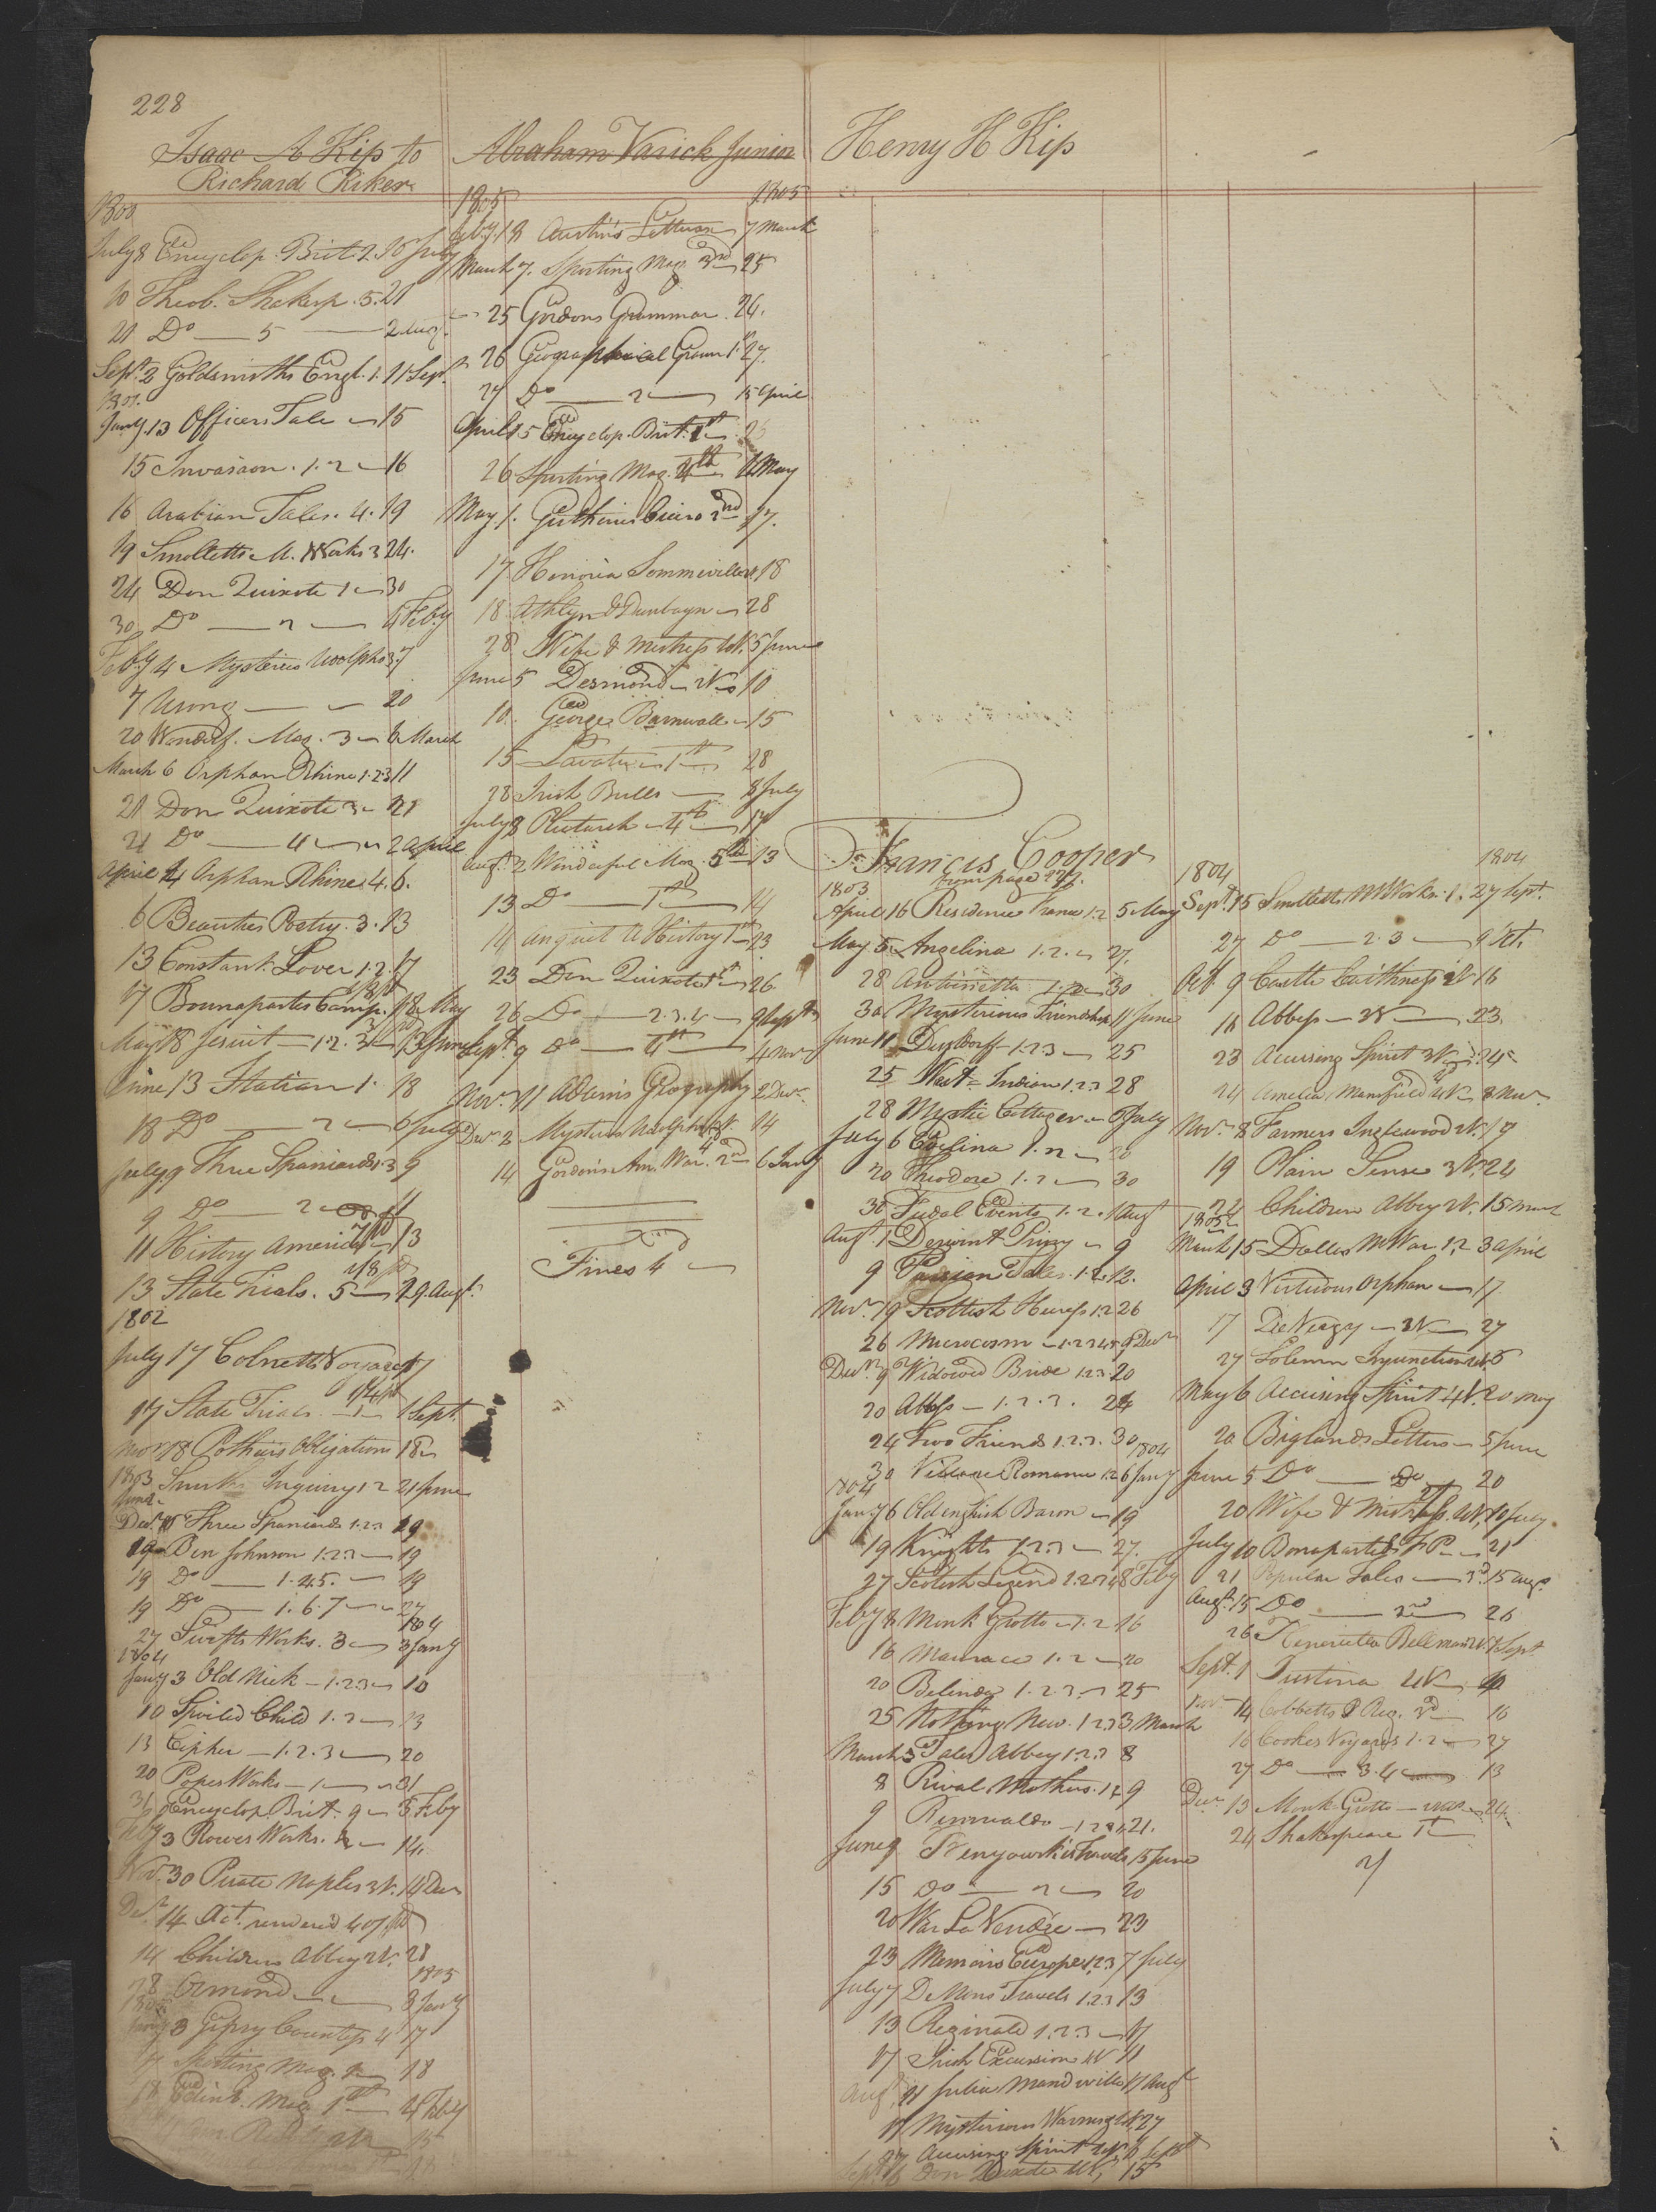 228
Isaac A Kip to
Richard Riker
Abraham Varick Junior
Henry H Kip
1800
July 8 Encyclop. Brit. 2. 10 July
10 Theob. Shaksp. 5. 21
21 Do — 5 — 2 Aug.
Sept. 2 Goldsmiths Engl. 1. 11 Sept.
1801.
Jany. 13 Officers Tale — 15
15 Invasion. 1.2 — 16
16 Arabian Tales. 4. 19
19 Smolletts M. Works 3 24.
24 Don Quixote 1 — 30
30 Do — 2 — 4 Feby
Feby 4 Mysteries Udolpho 3. 7
7 Usong — — 20
20 Wonderf. Mag. 3 — 6 March
March 6 Orphan Rhine 1.2.3 11
21 Don Quixote 3 — 21
21 Do — 4 — 2 April
April 2 Orphan Rhine 4. 6.
6 Beauties Poetry. 3. 13
13 Constant Lover 1.2. 17
17 Bounapartes Camp. 18 May
May 18 Jesuit — 1.2.3 — 13 June
June 13 Italian 1. 18
18 Do — 2 — 6 July
July 9 Three Spaniards 1.3 9
9 Do — 2 — 11
11 History America — 13
13 State Trials. 5 — 29 Augt.
1802
July 17 Colnetts Voyage 17
17 State Trials — 1 — 1 Sept.
Novr 18 Pothiers Obligations 18
1803 Smiths Inquiry 1 2 21 June
June 2
Decr. 10 Three Spaniards 1.2.3 19
19 Ben Johnson 1.2.3 — 19
19 Do — 1.4.5. — 19
19 Do — 1.6.7 — 27
27 Swifts Works. 3 — 3 Jany
1804
1804
Jany 3 Old Nick — 1.2.3 — 10
10 Spoiled Child 1.2 — 13
13 Cipher — 1.2.3 — 20
20 Popes Works — 1 — 31
31 Encyclop. Brit. 9 — 3 Feby
Feby 3 Rowes Works. 2 — 14.
Nov. 30 Pirate Naples 3V. 14 Decr
Decr. 14 Act. rendered 40/ pd
14 Children Abbey 2V. 28
28 Ormond — 3 Jany
1805
1805
Jany 3 Gipsy Countess 4 17
17 Sporting Mag. 1 — 18
18 Edinb. Mag 1st — 4 Feby
1805
1805
Feby. 18 Austin's Letters 7 March
March 7. Sporting Mag. 3rd 25
25 Gordons Grammar. 26.
26 Geographical Gram 1st 27.
27 Do — 2 — 15 April
April 15 Encyclop. Brit. 1st 25
26 Sporting Mag. 4th 1 May
May 1. Guthries Cicero 2nd 17.
17 Honoria Sommerville 18
18 Athlyn & Dunbayn — 28
28 Wife & Mistress 4V. 5 June
June 5 Desmond — 2V — 10
10. George Barnwall — 15
15 Lavater — 1st — 28
28 Irish Bulls — 8 July
July 8 Plutarch — 4th — 17
Augt. 2 Wonderful Mag. 5th 13
13 Do — 1st — 14
14 Anquit. A History 1st 23
23 Don Quixote 1st — 26
26 Do — 2.3.4 — 9 Septr
Sept. 9 Do — 4th — 4 Novr
Novr. 11 Adams Geography 2 Decr.
Decr. 2 Mysteries Udolpho 14
14 Gordons Am. War. 2nd 6 Jany
Fines 4d —
Francis Cooper
from page 172.
1803
April 16 Residence France 1.2 5 May
May 5 Angelina 1.2. — 27.
28 Antoinetta 1.2 — 30
30 Mysterious Friendship 11 June
June 11 Dusseldorf 1.2.3 — 25
25 West Indian 1.2.3 28
28 Mystic Cottager — 6 July
July 6 Edelina 1.2 — 20
20 Theodore 1.2 — 30
30 Feudal Events 1.2. 1 Augt
Augt. 1 Derwent Priory — 9
9 Persian Tales. 1.2. 12.
Novr. 19 Scottish Heiress 1.2 26
26 Microcosm — 1.2.3.4.5 9 Decr
Decr. 9 Widowed Bride 1.2.3 20
20 Abbess — 1.2.3. 24
24 Two Friends 1.2.3. 30
30 Village Romance 1.2 6 Jany
1804
1804
Jany 6 Old English Baron — 19
19 Knights 1.2.3 — 27.
27 Scotish Legend 1.2.3.4 8 Feby
Feby 8 Monk Grotto — 1.2 16
16 Man race 1.2 — 20
20 Belinda 1.2.3. — 25
25 Nothing New. 1 2.3 3 March
March 3 Tales Abbey 1.2.3 8
8 Rival Mothers. 1.2 9
9 Rinnualdo — 1 2 3 4. 21.
June 9 Benyowskis Travels 15 June
15 Do — 2 — 20
20 War La Vendee — 23
23 Memoirs Europe 1.2.3 7 July
July 7 De Mons Travels 1.2.3 13
13 Reginald 1.2.3 — 17
17 Irish Excursion 4V 11
Augt. 11 Julia Mandeville 17 Augt
17 Mysterious Warnings 4V. 27
27 Accusing Spirit 4V. 6 Sept
Sept. 6 Don Quixote 4V, 15
1804
1804
Sept. 15 Smolletts M Works. 1. 27 Sept.
27 Do — 2.3 — 9 Oct.
Oct. 9 Castle Caithness 2V 16
16 Abbess — 3V — 23
23 Accusing Spirit 3V — 24
24 Amelia Mansfield 4V — 8 Novr.
Novr. 8 Farmers Inglewood 4V. 19
19 Plain Sense 3V. 24
24 Children Abbey 2V. 15 March
1805
March 15 Dallas M War 1.2 3 April
April 3 Virtuous Orphan — 17.
17 De Vergy — 3V — 27
27 Solemn Injunction 4V. 5
May 6 Accusing Spirit 4V. 20 May
20 Biglands Letters — 5 June
June 5 Do — Do — 20
20 Wife & Mistress. 4V. 10 July
July 10 Bonapartes F P — 21
21 Popular Tales — 3d. 15 Augt.
Augt. 15 Do — 2nd — 26
26 Henrietta Bellman 2V. 1 Sept
Sept. 1 Justina 4V —
Novr 14 Cobbetts P Reg. 2d — 16
16 Cookes Voyages 1.2 — 27
27 Do — 3.4 — 13
Decr. 13 Monk Grotto — 24.
24 Shakespeare 1st —